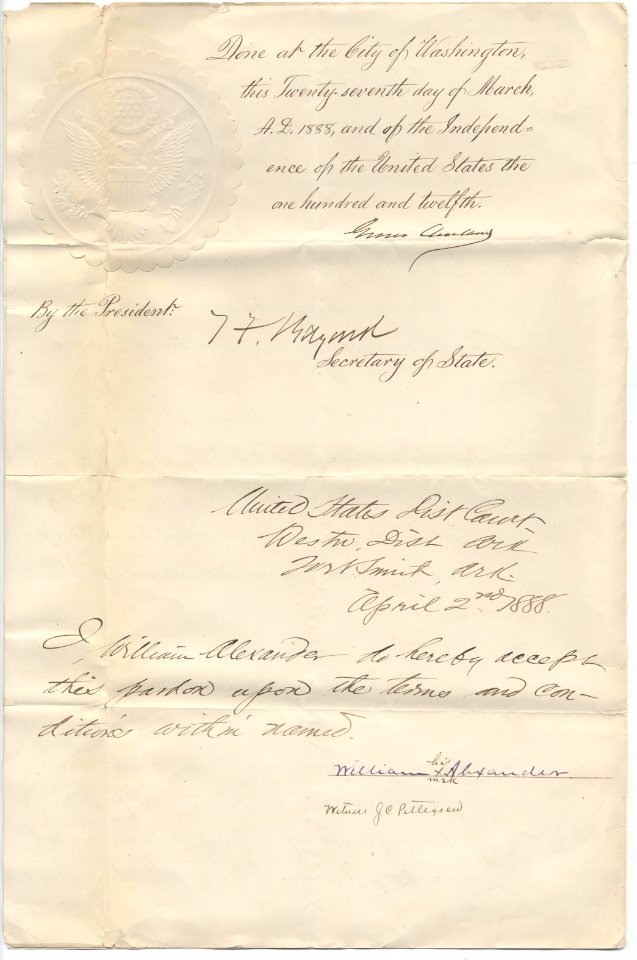 Done at the City of Washington,
this Twenty-seventh day of March,
A.D. 1888, and of the Independ=
ence of the United States the
one hundred and twelfth.
Grover Cleveland
By the President:
T. F. Bayard
Secretary of State.
United States Dist. Court
Westn. Dist Ark
Fort Smith, Ark.
April 2nd. 1888.
I, William Alexander do hereby accept
this pardon upon the terms and con-
ditions within named.
his
William x Alexander
mrk
Witness J C Pettigrew